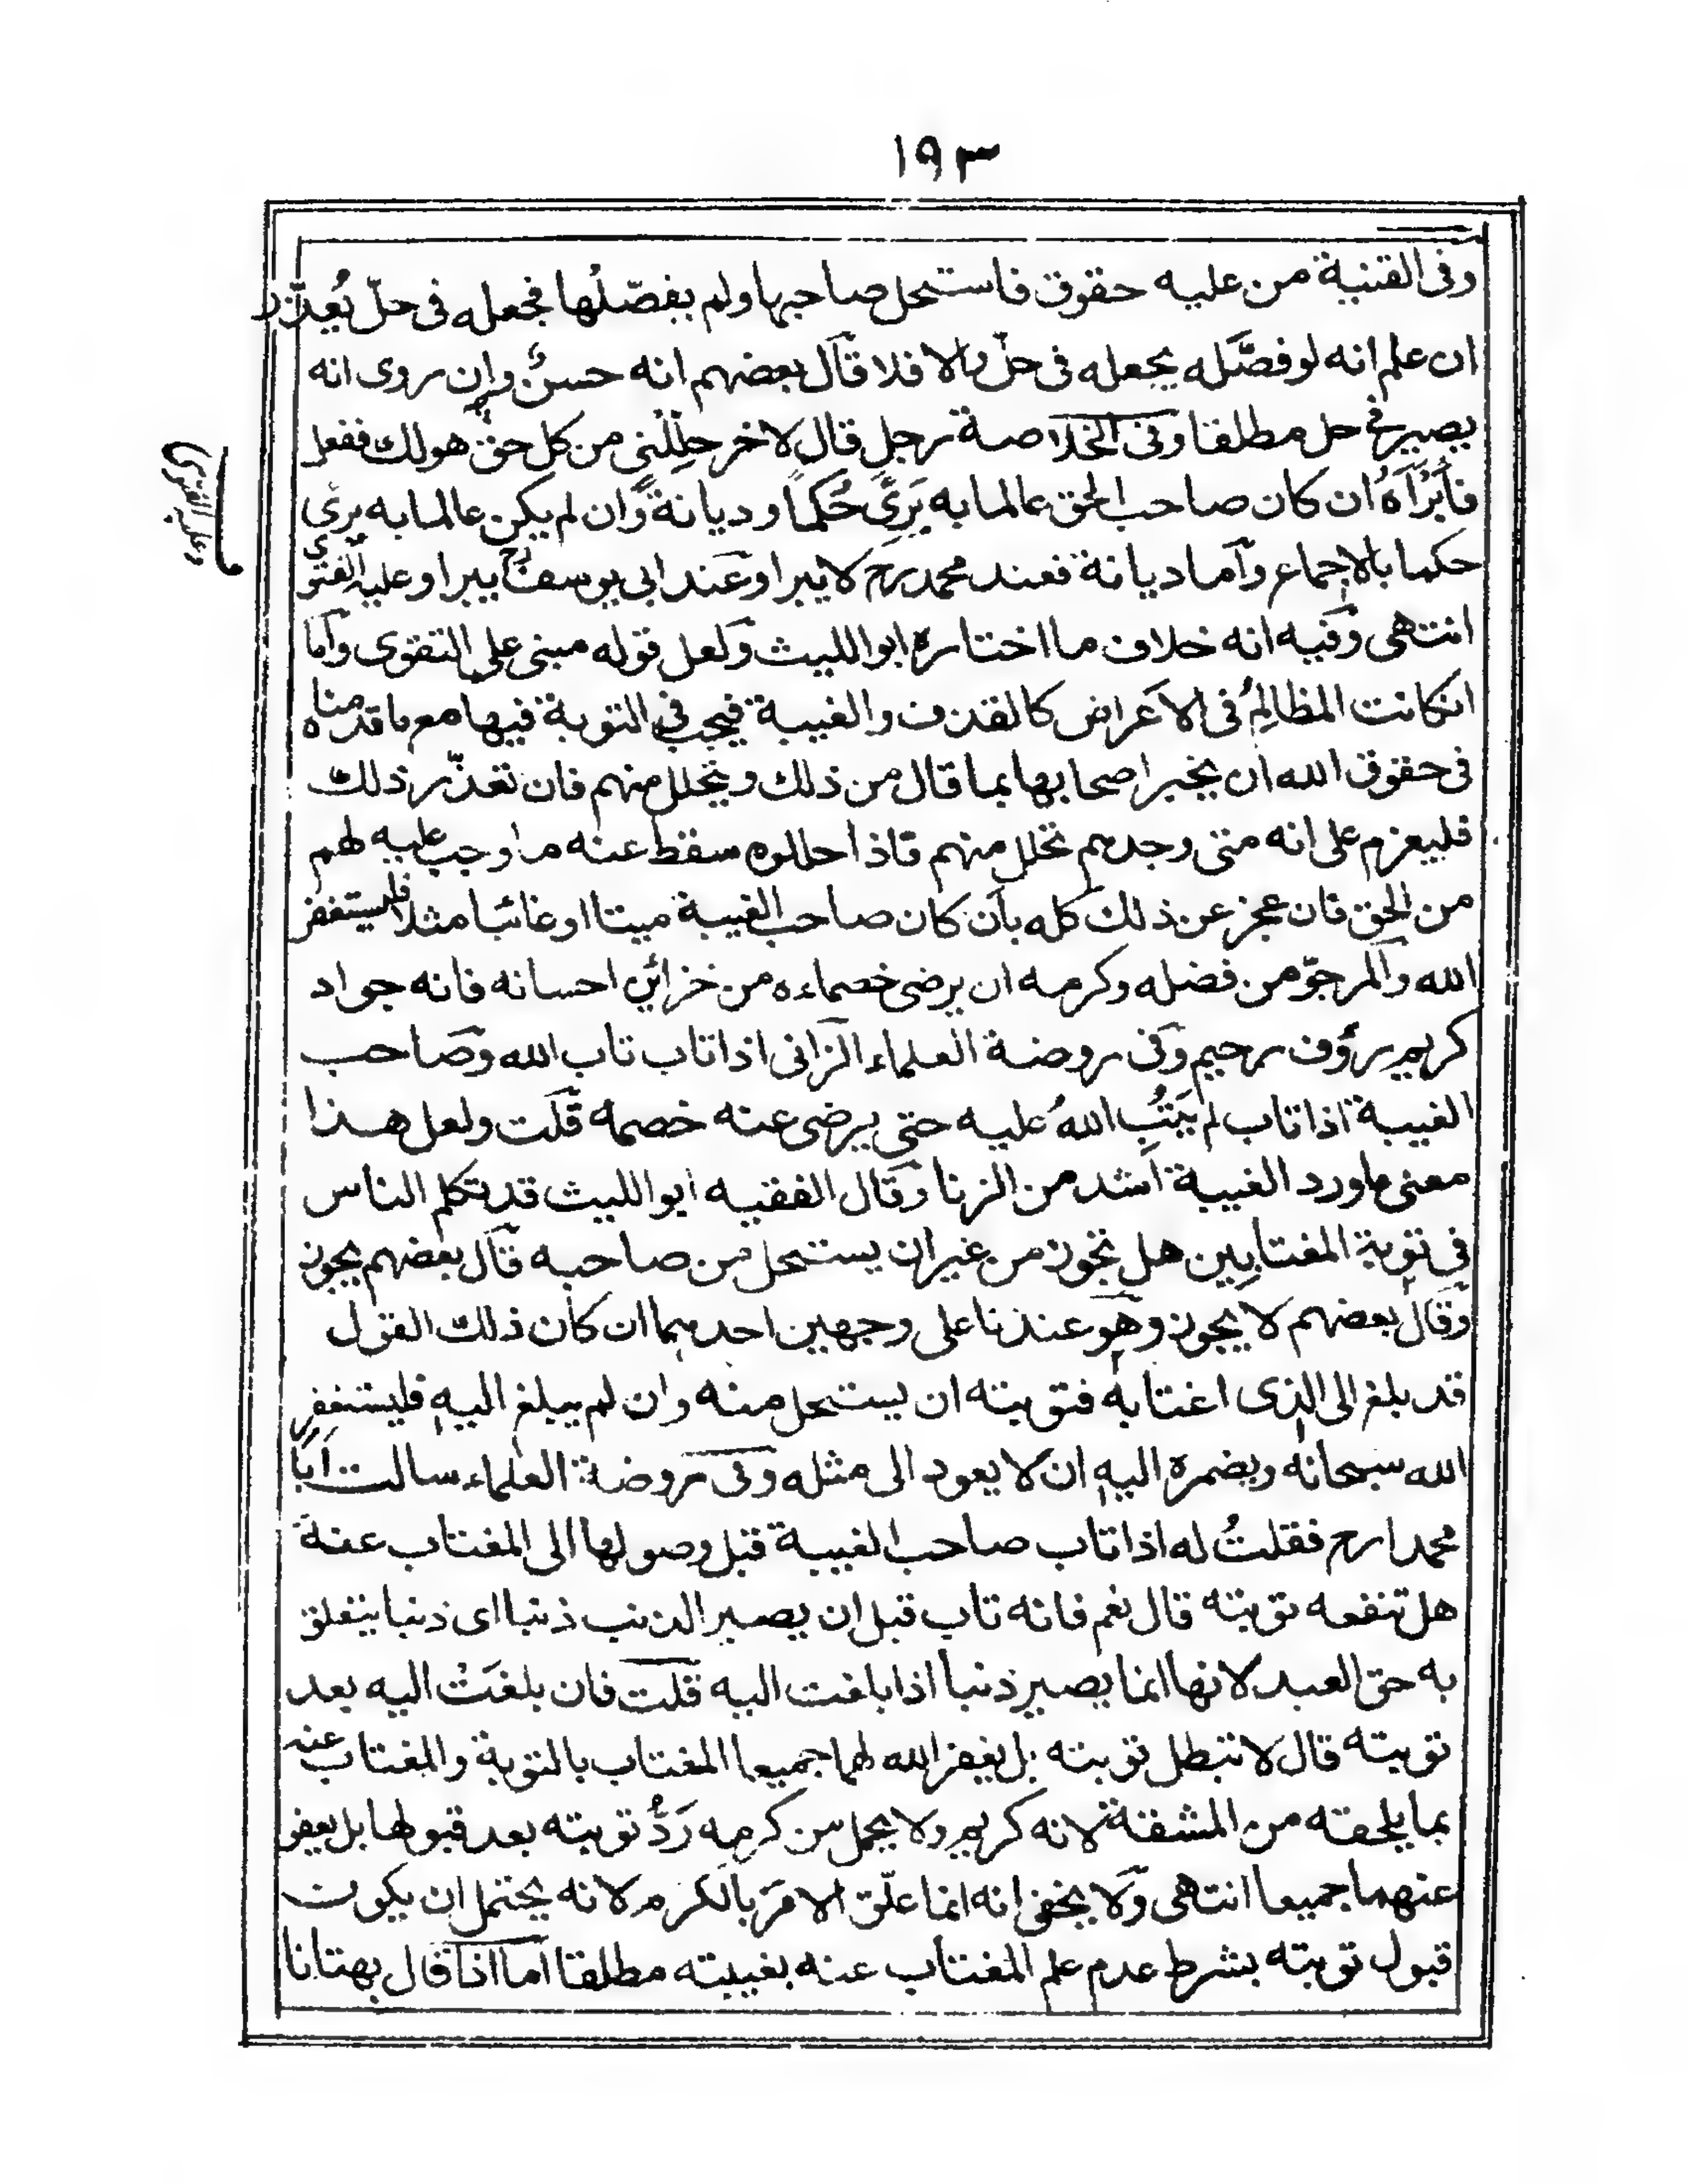 ١٩٣
وفى القنية من عليه حقوق فاستحل صاحبها ولم يفصّلها فجعله فى حلّ يُعذَر
ان علم انه لو فصَّله يجعله فى حلّ والا فلا قال بعضهم انه حسنٌ وإن روى انه
يصير فى حل مطلقا وفى الخلاصة رجل قال لاخر حلِّلْنى من كل حق هو لك ففعل
فأبْرَأَهُ ان كان صاحب الحق عالما به بَرِئَ حُكماً وديانةً وان لم يكن عالما به برئ
حكما بالاجماع وأما ديانة فعند محمد رح لا يبرا وعند ابى يوسف رح يبرا وعليه الفتوى
انتهى وفيه انه خلاف ما اختاره ابو الليث ولعل قوله مبنى على التقوى وأما
انكانت المظالِمُ فى الاعراض كالقذف والغيبة فيجب فى التوبة فيها مع ما قدمناه
فى حقوق الله ان يخبر اصحابها بما قال من ذلك ويتحلل منهم فان تعذّر ذلك
فليعزم على انه متى وجدهم تحلل منهم فاذا حللوه سقط عنه ما وجب عليه لهم
من الحق فان عجز عن ذلك كله بأن كان صاحب الغيبة ميتا او غائبا مثلا فليستغفر
الله والمرجوّ من فضله وكرمه ان يرضى خصماءه من خزائن احسانه فانه جواد
كريم رؤف رحيم وفى روضة العلماء الزانى اذا تاب تاب الله وصاحب
الغيبة اذا تاب لم يَتُبِ اللهُ عليه حتى يرضى عنه خصمه قلت ولعل هذا
معنى ما ورد الغيبة اشد من الزنا وقال الفقيه ابو الليث قد تكلم الناس
فى توبة المغتابين هل تجوز من غير ان يستحل من صاحبه قال بعضهم يجوز
وقال بعضهم لا يجوز وهو عندنا على وجهين احدهما ان كان ذلك القول
قد بلغ الى الذى اغتابه فتوبته ان يستحل منه وان لم يبلغ اليه فليستغفر
الله سبحانه ويضمره اليه ان لا يعود الى مثله وفى روضة العلماء سالت أبا
محمدا رح فقلتُ له اذا تاب صاحب الغيبة قبل وصولها الى المغتاب عنه
هل تنفعه توبته قال نعم فانه تاب قبل ان يصير الذنب ذنبا اى ذنبا يتعلق
به حق العبد لانها انما يصير ذنبا اذا بلغت اليه قلت فان بلغَتْ اليه بعد
توبته قال لا تبطل توبته بل يغفر الله لهما جميعا المغتاب بالتوبة والمغتاب عنه
بما يلحقه من المشقة لانه كريم ولا يجمل من كرمه رَدُّ توبته بعد قبولها بل يعفو
عنهما جميعا انتهى ولا يخفى انه انما علّق الامرَ بالكرم لانه يحتمل ان يكون
قبول توبته بشرط عدم علم المغتاب عنه بغيبته مطلقا أما اذا قال بهتانا